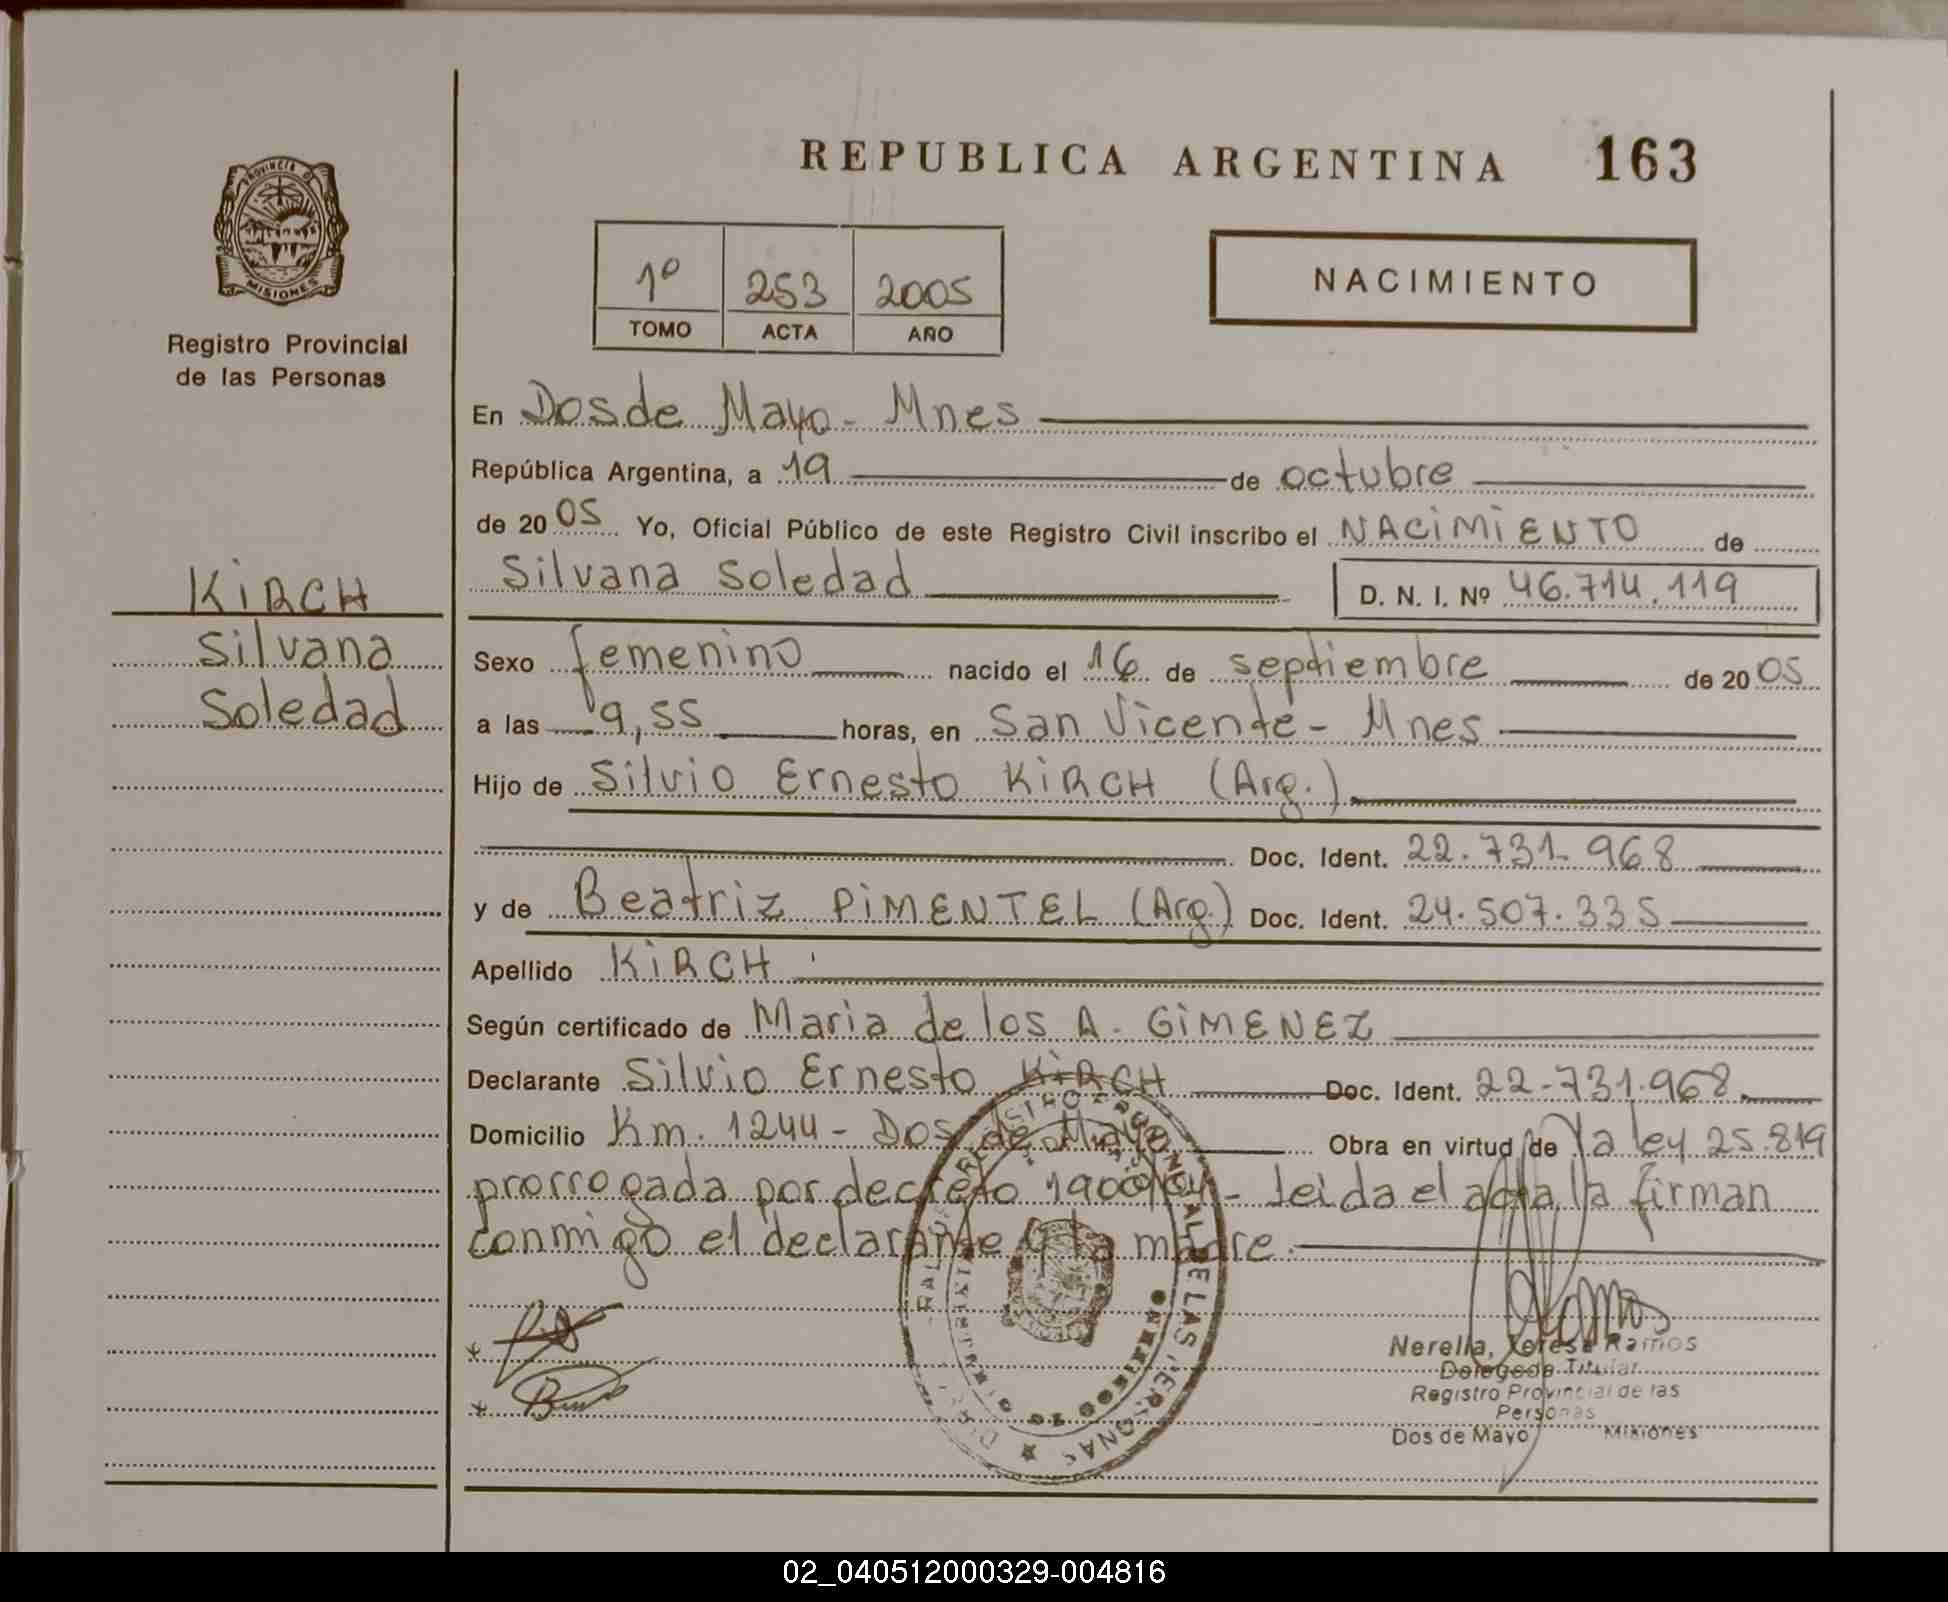 REPUBLICA ARGENTINA 163
PROVINCIA DE
MISIONES
Registro Provincial
de las Personas
1º 253 2005
TOMO ACTA AÑO
NACIMIENTO
KIRCH
Silvana
Soledad
En Dos de Mayo - Mnes
República Argentina, a 19 de octubre
de 2005 Yo, Oficial Público de este Registro Civil inscribo el NACIMIENTO de
Silvana Soledad D. N. I. Nº 46.714.119
Sexo femenino nacido el 16 de septiembre de 2005
a las 9,55 horas, en San Vicente - Mnes
Hijo de Silvio Ernesto KIRCH (Arg.)
Doc. Ident. 22.731.968
y de Beatriz PIMENTEL (Arg.) Doc. Ident. 24.507.335
Apellido KIRCH
Según certificado de Maria de los A. GIMENEZ
Declarante Silvio Ernesto KIRCH Doc. Ident. 22-731.968
Domicilio Km. 1244 - Dos de Mayo Obra en virtud de la ley 25.819
prorrogada por decreto 1900/04 - Leida el acta la firman
conmigo el declarante y la madre.
Nerella, Teresa Ramos
Delegada Titular
Registro Provincial de las
Personas
Dos de Mayo Misiones
02_040512000329-004816